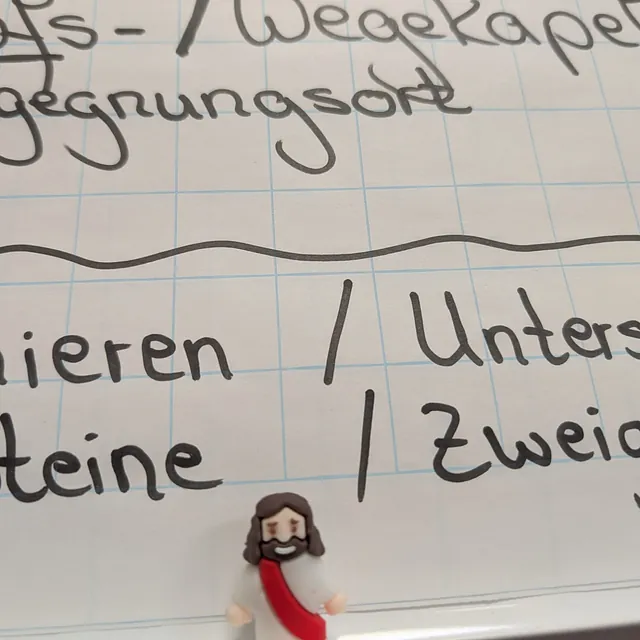 ofs- / Wegekapel
gegnungsort
nieren / Unters
teine / Zweig